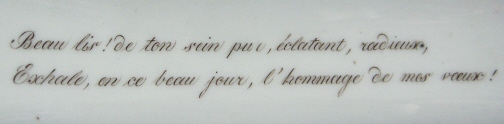 Beau lis! de ton sein pur, éclatant, radieux,
Exhale, en ce beau jour, l'hommage de mes vœux!